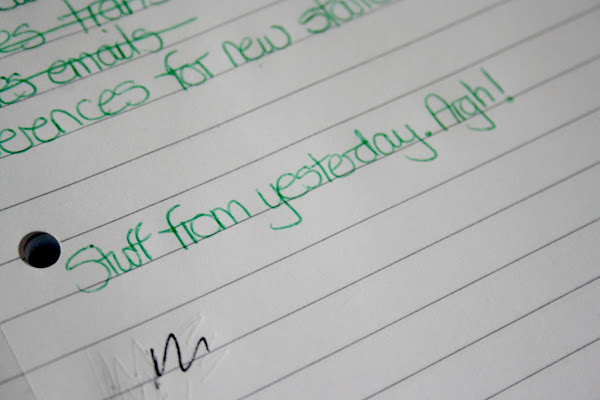 es
es emails
erences for new
Stuff from yesterday. Argh!